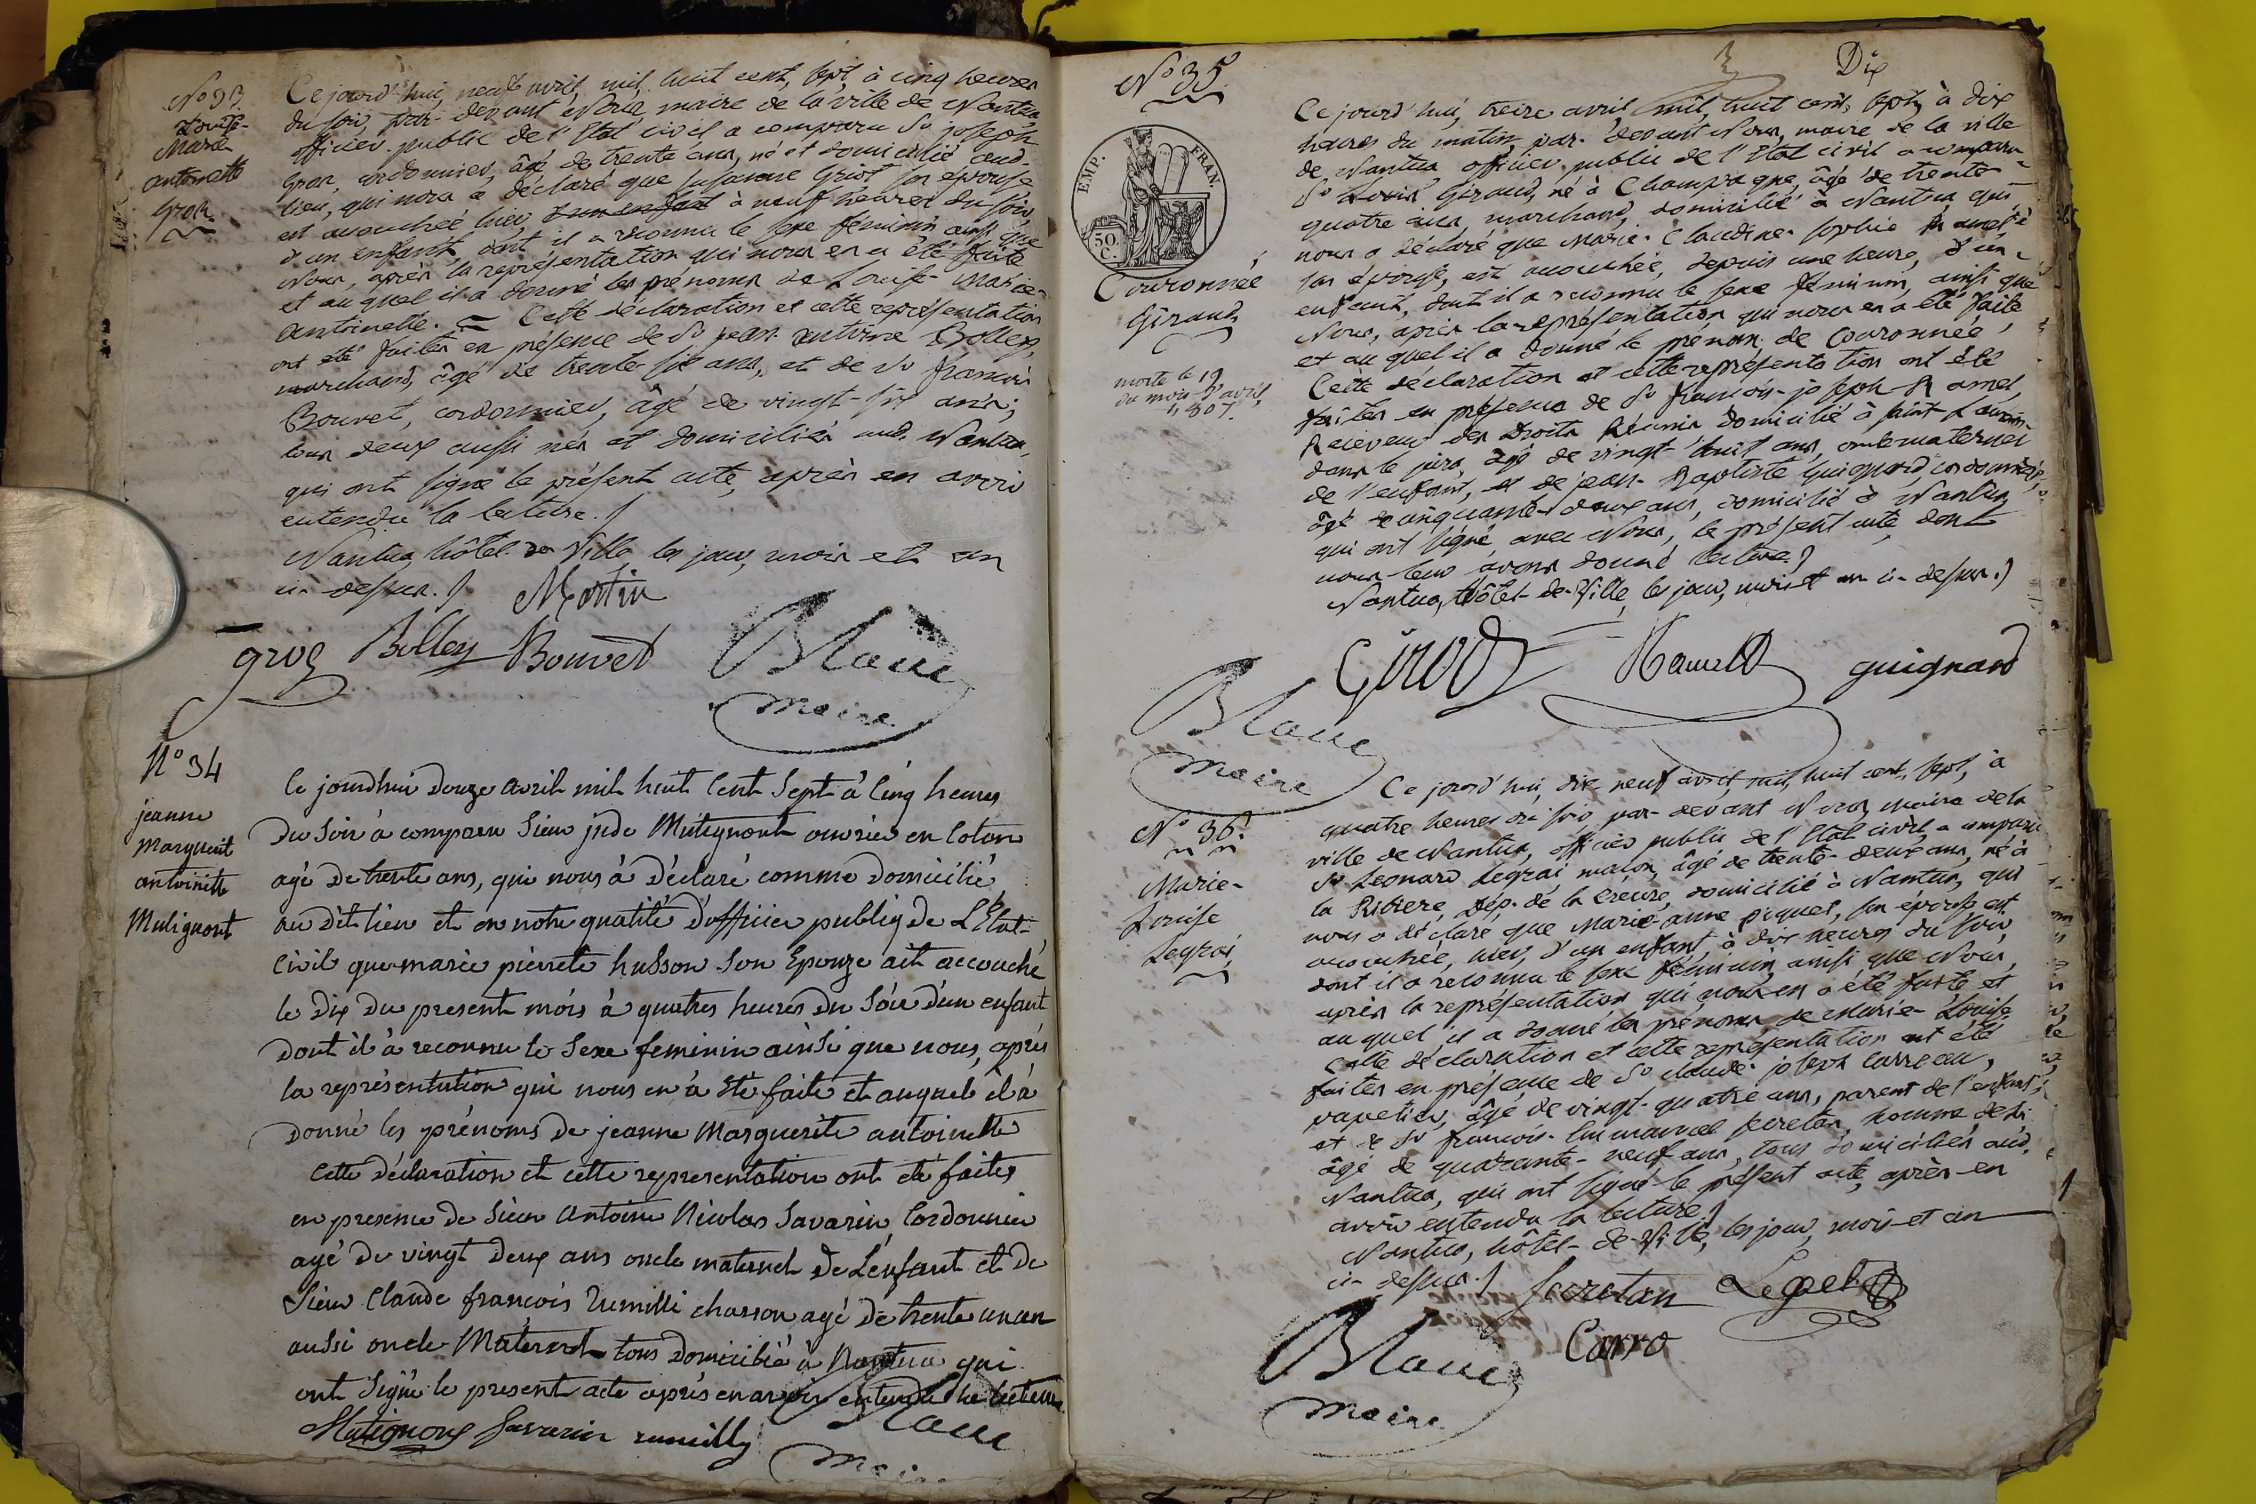 N° 33.
Louise-
Marie-
antoinette
Groz.
Ce jourd'hui, neuf avril, mil huit cent, sept, à cinq heures
du soir, par-devant Nous, maire de la ville de Nantua
officier public de l'Etat civil a comparu Sr joseph
Groz, cordonnier, âgé de trente ans, né et domicilié aud.
lieu, qui nous a déclaré que Susanne son épouse
est accouchée, hier, à neuf heures du soir,
d'un enfant, dont il a reconnu le sexe féminin ainsi que
Nous, après la représentation qui nous en a été faite
et auquel il a donné les prénoms de Louise-Marie-
antoinette. = Cette déclaration et cette représentation
ont été faites en présence de Sr jean antoine Bolley,
marchand, âgé de trente six ans, et de Sr françois
Bouvet, cordonnier, âgé de vingt-six ans;
tous deux aussi nés et domiciliés aud. Nantua,
qui ont signé le présent acte, après en avoir
entendu la lecture./
Nantua, hôtel-de-Ville les jour, mois et an
ci-dessus./ Martin
groz Bolley Bouvet Blanc
maire
N° 34
jeanne
Marguerit
antoinette
Mutignont
Ce jourdhui douze avril mil huit Cent Sept à Cinq heures
du Soir à comparu Sieur jude Mutignont ouvrier en Coton
agé de trente ans, qui nous à déclaré comme domicilié
au dit lieu et en notre qualité d'officier publiq de L'Etat-
Civil que marie pierrete husson Son Epouze ait accouché
le dix du present mois à quatres heures du Soir d'un enfant
dont il à reconnu le Sexe feminin ainsi que nous, après
la représentation qui nous en à été faite et auquel il à
donné les prénoms de jeanne Marguerite antoinette
Cette déclaration et cette representation ont été faites
en presence de Sieur Antoine Nicolas Savarin, Cordonnier
agé de vingt deux ans oncle maternel de L'enfant et de
Sieur Claude françois Rumilli charron agé de trente un an
aussi oncle Maternel tous domicilié à Nantua qui
ont Signé le present acte après en avoir entendu la lecture
Mutignont Savarin rumilly Blanc
maire
Dix
N° 35
EMP. FRAN.
50
C.
Couronnée
Giraud
morte le 19
du mois d'avril
1807.
Ce jourd'hui, treize avril, mil, huit cent, sept, à dix
heures du matin, par-devant Nous, maire de la ville
de Nantua officier public de l'Etat civil a comparu
Sr Louis Giraud, né à Champagne, âgé de trente-
quatre ans, marchand, domicilié à Nantua qui
nous a déclaré que Marie-Claudine-Sophie Ramel,
son épouse, est accouchée, depuis une heure, d'un
enfant, dont il a reconnu le sexe féminin, ainsi que
Nous, après la représentation qui nous en a été faite
et auquel il a donné le prénom de Couronnée
Cette déclaration et cette représentation ont été
faites en présence de Sr françois-joseph Ramel,
Receveur des Droits Réunis domicilié à saint Laurent
dans le jura, âgé de vingt-huit ans, oncle maternel
de l'enfant, et de jean-Baptiste Guignard, cordonnier,
âgé de cinquante-deux ans, domicilié à Nantua
qui ont signé, avec Nous, le présent acte, dont
nous leur avons donné lecture./
Nantua, hôtel-de-Ville, les jour, mois et an ci-dessus./
Ramel guignard
Blanc
maire
N° 36.
Marie-
Louise
Legrai
Ce jourd'hui, dix-neuf avril, mil, huit cent, sept, à
quatre heures du soir par-devant Nous, maire de la
ville de Nantua, officier public de l'Etat civil, a comparu
Sr Leonard Legrai maçon, âgé de trente-deux ans, né à
la Ribiere, Dép. de la Creuse, domicilié à Nantua, qui
nous a déclaré que Marie-anne piquet, son épouse est
accouchée, hier, d'un enfant, à dix heures du soir,
dont il a reconnu le sexe féminin ainsi que Nous,
après la représentation qui nous en a été faite et
auquel il a donné les prénoms de Marie-Louise
Cette déclaration et cette représentation ont été
faites en présence de Sr claude-joseph Carreau,
papetier, âgé de vingt-quatre ans, parent de l'enfant;
et de Sr françois-Emmanuel secretan, homme de loi
âgé de quarante-neuf ans, tous domiciliés aud.
Nantua, qui ont signé le présent acte, après en
avoir entendu la lecture./
Nantua, hôtel-de-Ville, les jour, mois et an
ci-dessus./ Secretan
Carro
Blanc
maire